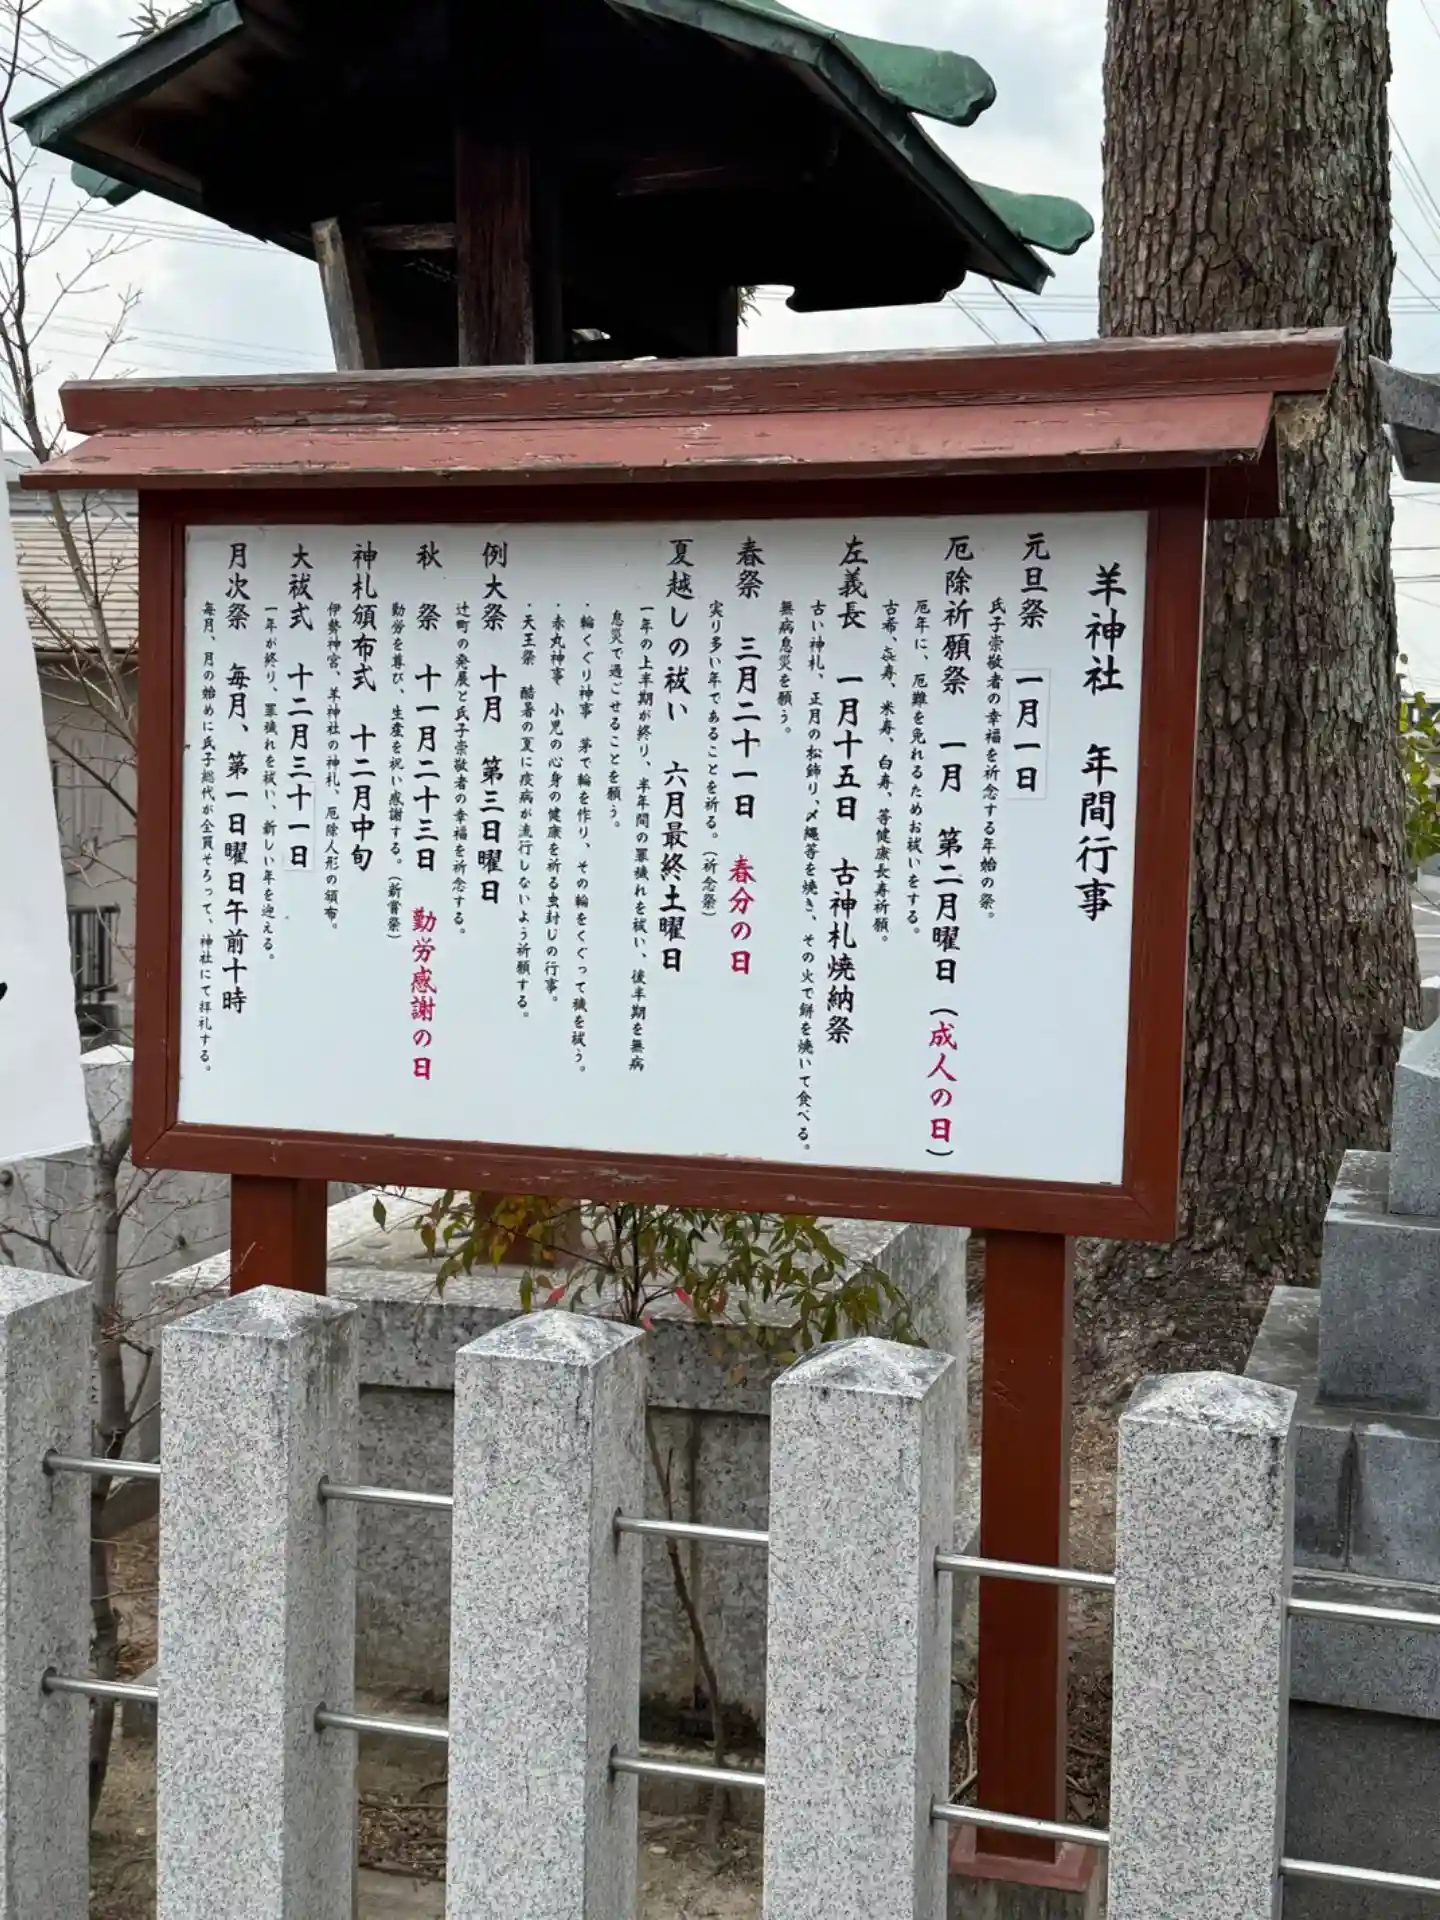 羊神社　年間行事
元旦祭　一月一日
氏子崇敬者の幸福を祈念する年始の祭。
厄除祈願祭　一月　第二月曜日（成人の日）
厄年に、厄難を免れるためお祓いをする。
古希、㐂寿、米寿、白寿、等健康長寿祈願。
左義長　一月十五日　古神札焼納祭
古い神札、正月の松飾り、〆縄等を焼き、その火で餅を焼いて食べる。
無病息災を願う。
春祭　三月二十一日　春分の日
実り多い年であることを祈る。（祈念祭）
夏越しの祓い　六月最終土曜日
一年の上半期が終り、半年間の罪穢れを祓い、後半期を無病
息災で過ごせることを願う。
・輪くぐり神事　茅で輪を作り、その輪をくぐって穢を祓う。
・赤丸神事　小児の心身の健康を祈る虫封じの行事。
・天王祭　酷暑の夏に疫病が流行しないよう祈願する。
例大祭　十月　第三日曜日
辻町の発展と氏子崇敬者の幸福を祈念する。
秋　祭　十一月二十三日　勤労感謝の日
勤労を尊び、生産を祝い感謝する。（新嘗祭）
神札頒布式　十二月中旬
伊勢神宮、羊神社の神札、厄除人形の頒布。
大祓式　十二月三十一日
一年が終り、罪穢れを祓い、新しい年を迎える。
月次祭　毎月、第一日曜日午前十時
毎月、月の始めに氏子総代が全員そろって、神社にて拝礼する。